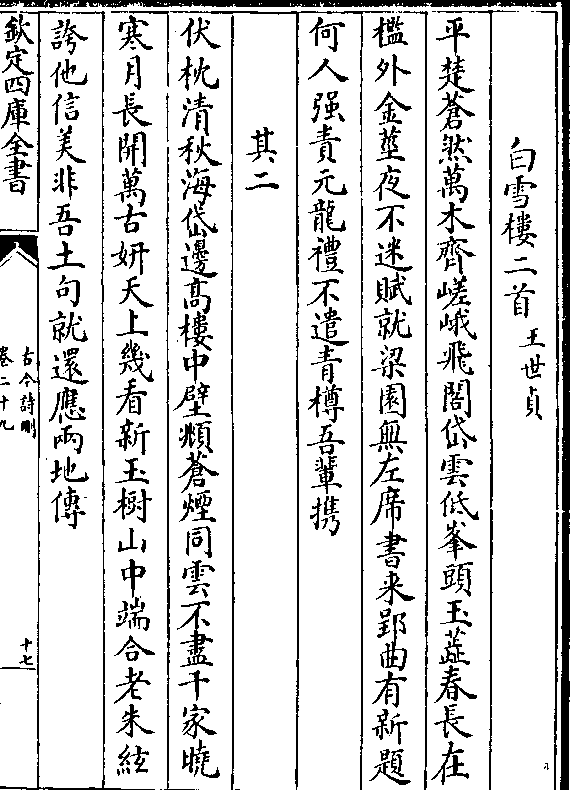 白雪樓二首 王世貞
平楚蒼然萬木齊嵯峨飛閣岱雲低峯頭玉蘂春長在
檻外金莖夜不迷賦就梁園無左席書来郢曲有新題
何人强責元龍禮不遣青樽吾輩携
其二
伏枕清秋海岱邊髙樓中壁頮蒼煙同雲不盡千家曉
寒月長開萬古妍天上幾看新玉樹山中端合老朱絃
誇他信美非吾土句就還應兩地傳
欽定四庫全書
古今詩刪
卷二十九
十七